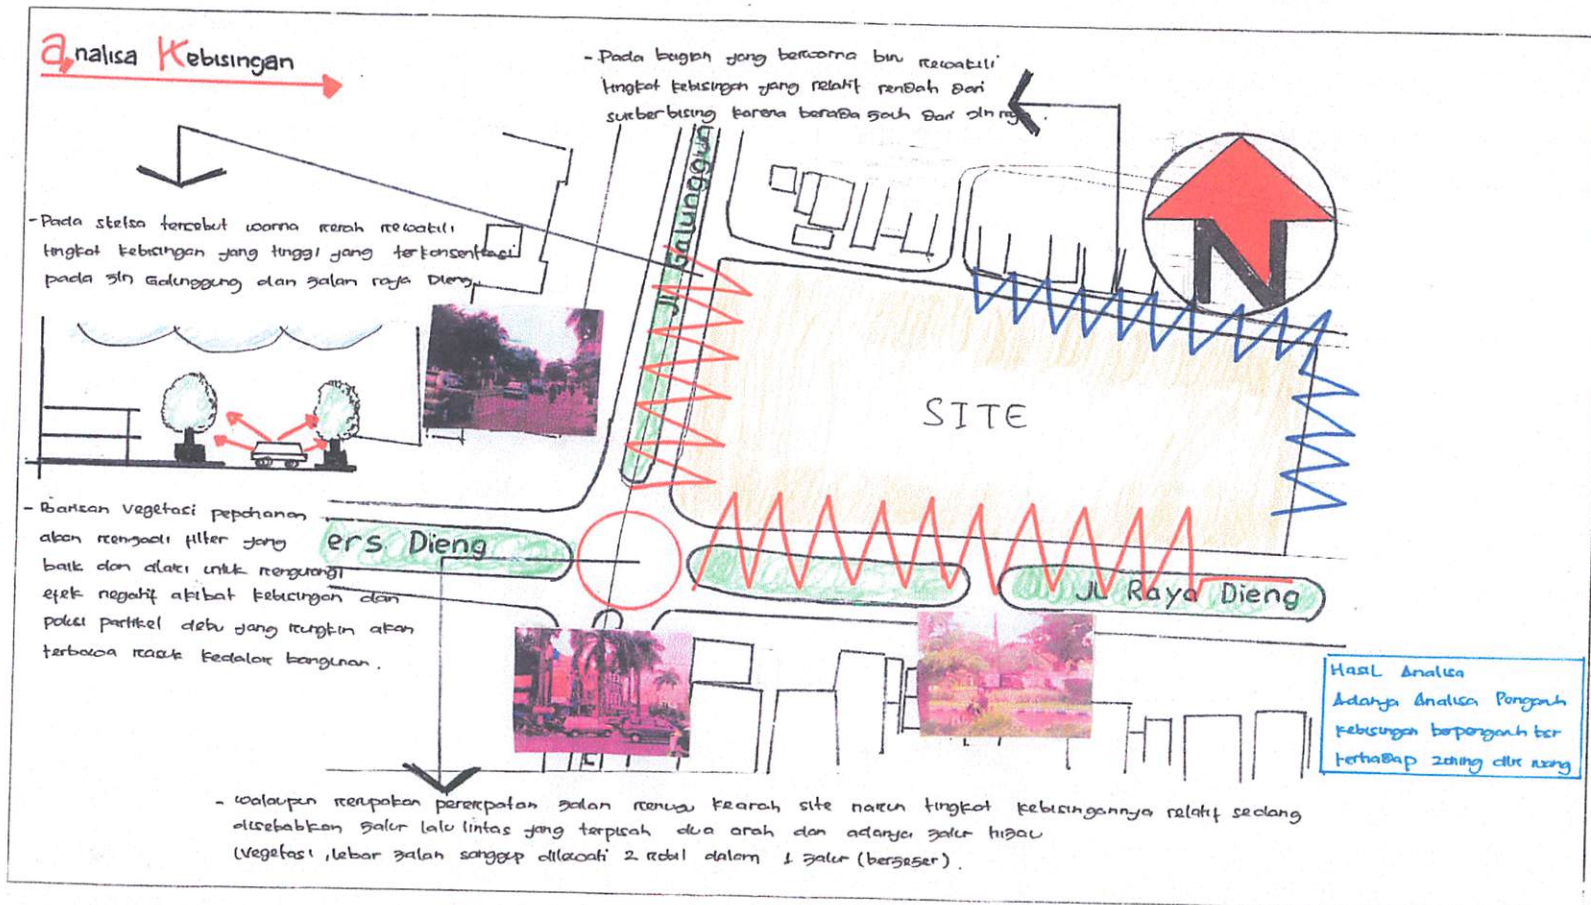 analisa Kebisingan
- Pada bagian yang berwarna biru mewakili
tingkat kebisingan yang relatif rendah dari
sumber bising karena berada jauh dari jln raya.
- Pada sketsa tersebut warna merah mewakili
tingkat kebisingan yang tinggi yang terkonsentrasi
pada jln Galunggung dan jalan raya Dieng.
Jl Galunggun
N
SITE
- Barisan vegetasi pepohonan
akan menjadi filter yang
baik dan alami untuk mengurangi
efek negatif akibat kebisingan dan
polusi partikel debu yang mungkin akan
terbawa masuk kedalam bangunan.
ers Dieng
JL Raya Dieng
Hasil Analisa
Adanya Analisa Pengaruh
kebisingan berpengaruh bsr
terhadap zoning dlm ruang
- walaupun merupakan perempatan jalan menuju kearah site namun tingkat kebisingannya relatif sedang
disebabkan jalur lalu lintas yang terpisah dua arah dan adanya jalur hijau
(vegetasi, lebar jalan sanggup dilewati 2 mobil dalam 1 jalur (berjejer).